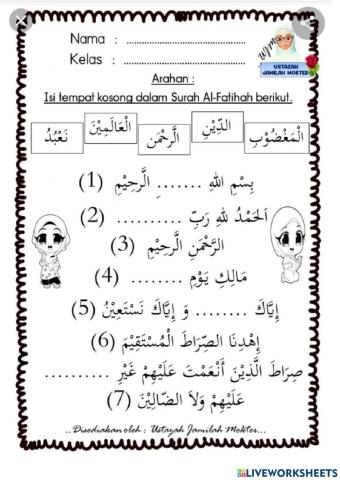 Nama : ..........................................
Kelas : ..........................................
wjm
USTAZAH
JAMILAH MOKTER
Arahan :
Isi tempat kosong dalam Surah Al-Fatihah berikut.
الْمَغْضُوْبِ الدِّيْنِ الرَّحْمٰنِ الْعَالَمِيْنَ نَعْبُدُ
بِسْمِ اللهِ ....... الرَّحِيْمِ (1)
اَلْحَمْدُ لِلهِ رَبِّ .......... (2)
الرَّحْمَنِ الرَّحِيْمِ (3)
مَالِكِ يَوْمِ ......... (4)
إِيَّاكَ ......... وَ إِيَّاكَ نَسْتَعِيْنُ (5)
إِهْدِنَا الصِّرَاطَ الْمُسْتَقِيْمَ (6)
صِرَاطَ الَّذِيْنَ أَنْعَمْتَ عَلَيْهِمْ غَيْرِ ..........
عَلَيْهِمْ وَلاَ الضَّالِيْنَ (7)
..Disediakan oleh : Ustazah Jamilah Mokter...
LIVEWORKSHEETS